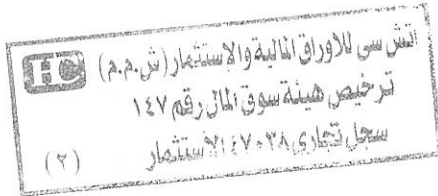 HC اتش سى للاوراق المالية والإستثمار (ش.م.م)
ترخيص هيئة سوق المال رقم ١٤٧
سجل تجارى ٤٧٠٣٨ الأستثمار
(٢)